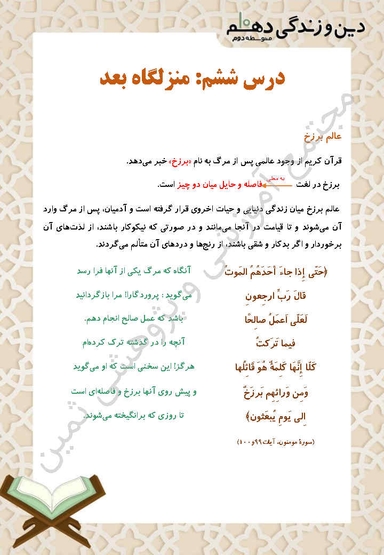 دین و زندگی دهم
متوسطه دوم
درس ششم: منزلگاه بعد
عالم برزخ
قرآن کریم از وجود عالمی پس از مرگ به نام «برزخ» خبر می‌دهد.
برزخ در لغت به معنی فاصله و حایل میان دو چیز است.
عالم برزخ میان زندگی دنیایی و حیات اخروی قرار گرفته است و آدمیان، پس از مرگ وارد
آن می‌شوند و تا قیامت در آنجا می‌مانند و در صورتی که نیکوکار باشند، از لذت‌های آن
برخوردار و اگر بدکار و شقی باشند، از رنج‌ها و دردهای آن متألم می‌گردند.
﴿حَتّی إِذا جاءَ أَحَدَهُمُ المَوتُ آنگاه که مرگ یکی از آنها فرا رسد
قالَ رَبِّ ارجِعونِ می‌گوید: پروردگارا! مرا بازگردانید
لَعَلّی أَعمَلُ صالِحًا باشد که عمل صالح انجام دهم.
فیما تَرَکتُ آنچه را در گذشته ترک کرده‌ام
کَلّا إِنَّها کَلِمَةٌ هُوَ قائِلُها هرگز! این سخنی است که او می‌گوید
وَمِن وَرائِهِم بَرزَخٌ و پیش روی آنها برزخ و فاصله‌ای است
إِلی یَومِ یُبعَثونَ﴾ تا روزی که برانگیخته می‌شوند.
(سورۀ مومنون، آیات ۹۹ و ۱۰۰)
مجتمع آموزشی و پژوهشی ثمین